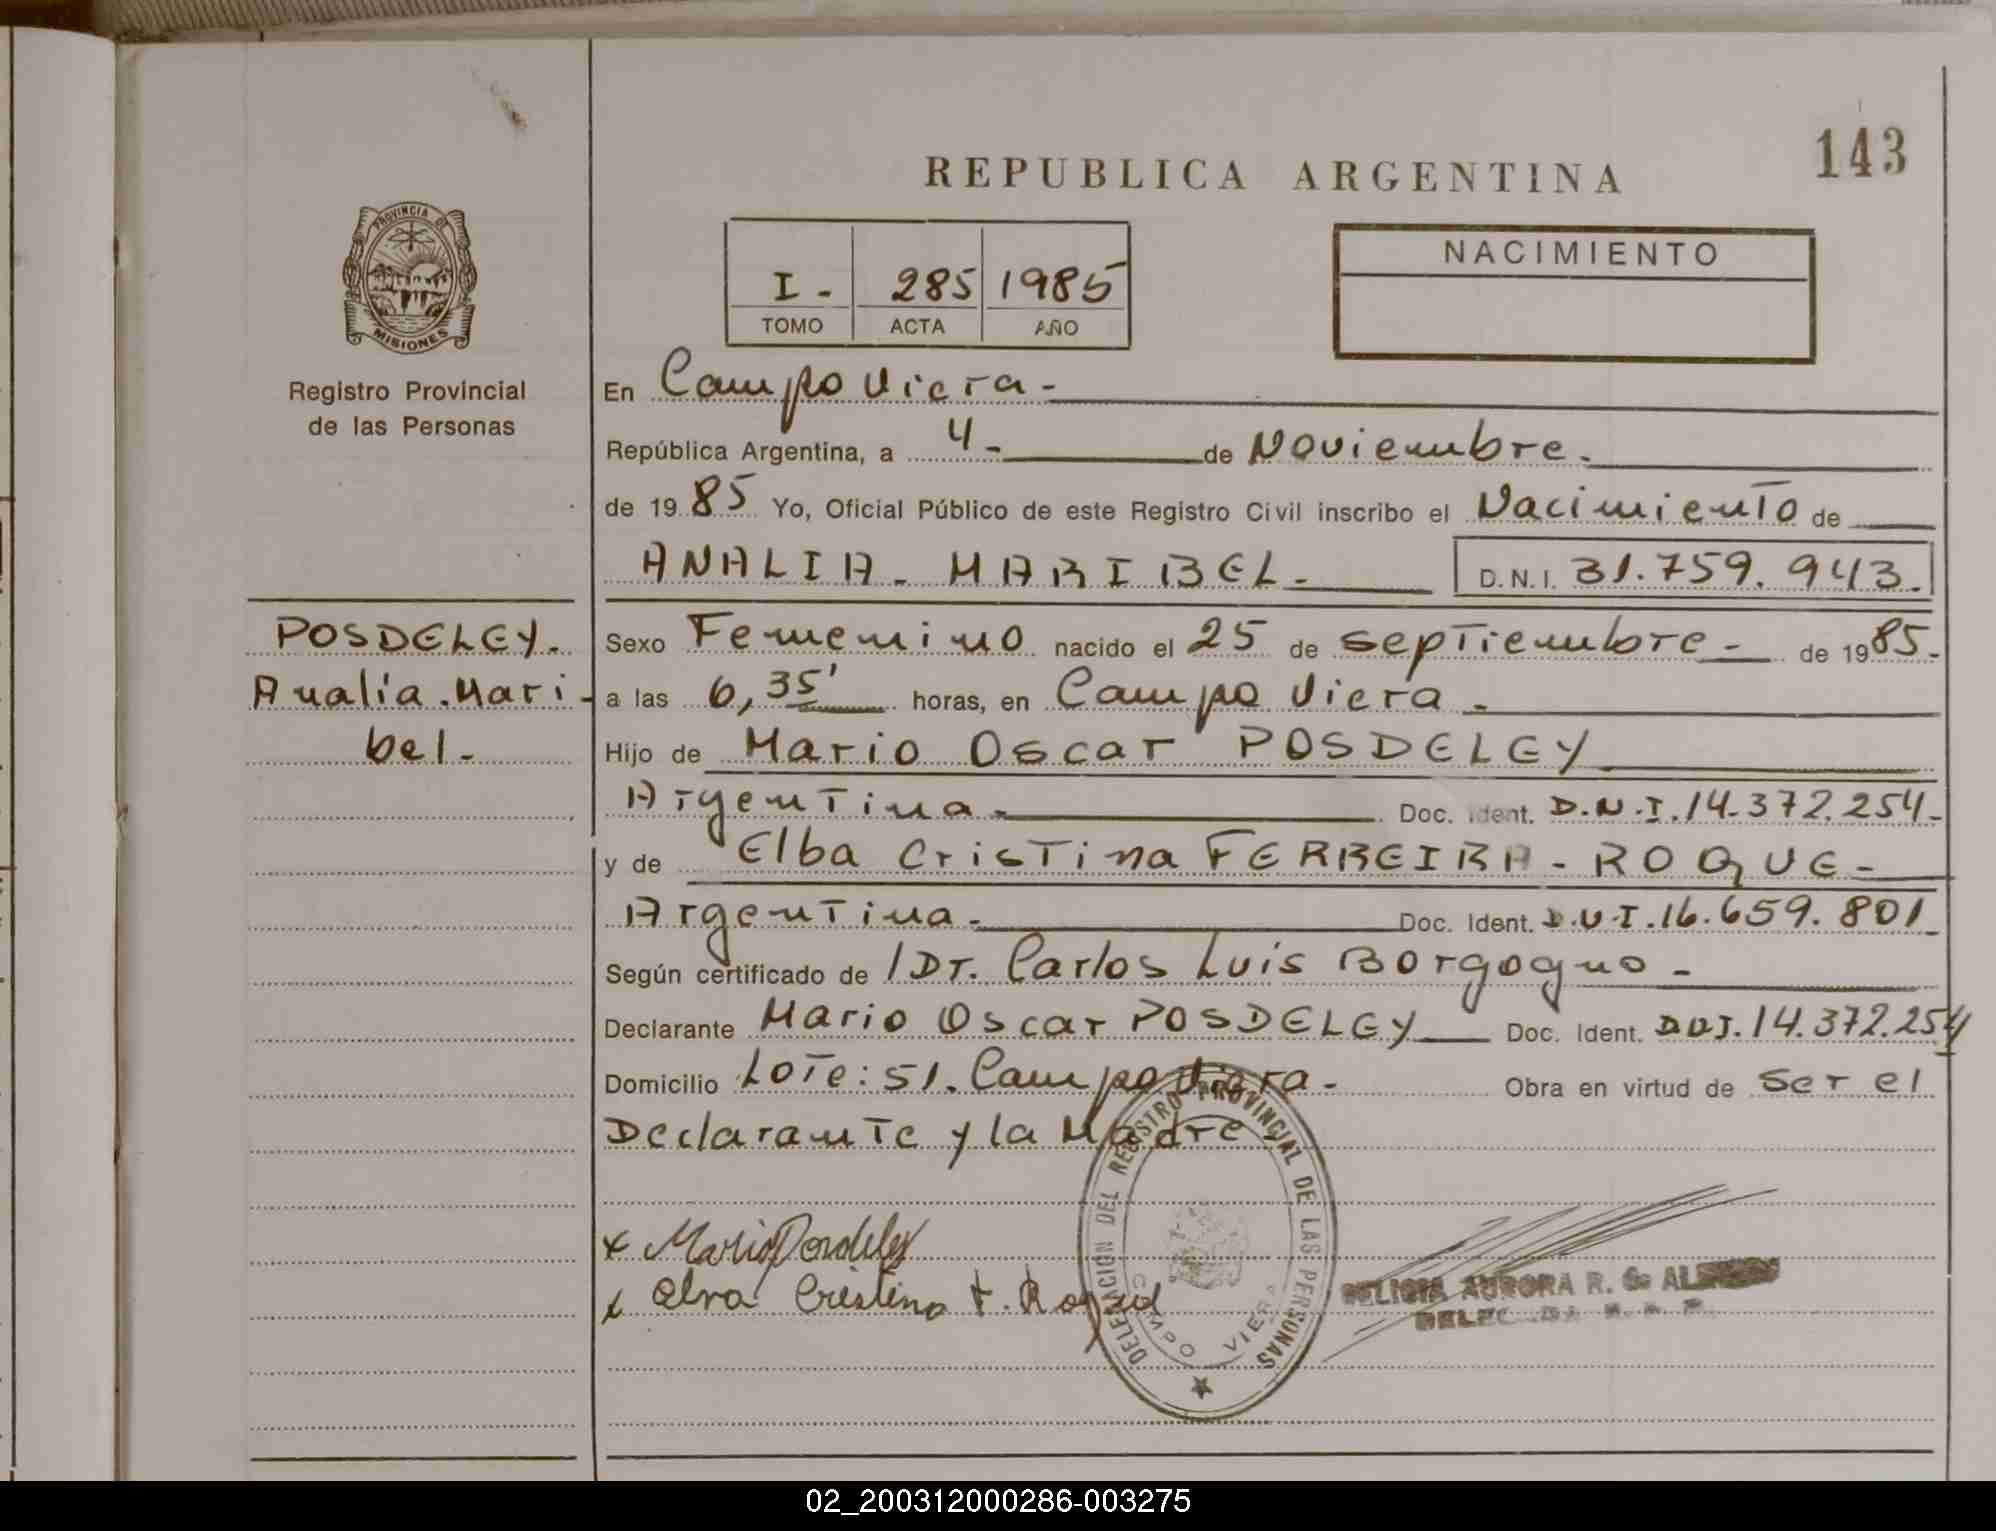 143
REPUBLICA ARGENTINA
PROVINCIA DE
MISIONES
Registro Provincial
de las Personas
I - 285 1985
TOMO ACTA AÑO
NACIMIENTO
En Campo Viera -
República Argentina, a 4 - de Noviembre.
de 19 85 Yo, Oficial Público de este Registro Civil inscribo el Nacimiento de
ANALIA - MARIBEL - D.N.I. 31.759.943.
POSDELEY.
Analía . Mari -
bel -
Sexo Femenino nacido el 25 de septiembre - de 19 85.
a las 6,35' horas, en Campo Viera -
Hijo de Mario Oscar POSDELEY
Argentina - Doc. Ident. D.N.I. 14.372.254 -
y de Elba Cristina FERREIRA - ROQUE -
Argentina - Doc. Ident. D.N.I. 16.659.801
Según certificado de / Dr. Carlos Luis Borgogno -
Declarante Mario Oscar POSDELEY Doc. Ident. DNI. 14.372.254
Domicilio Lote: 51. Campo Viera - Obra en virtud de ser el
Declarante y la Madre -
DELEGACION DEL REGISTRO PROVINCIAL DE LAS PERSONAS
CAMPO VIERA
x Mario Posdeley
x elva Cristina F.
AURORA R.
02_200312000286-003275